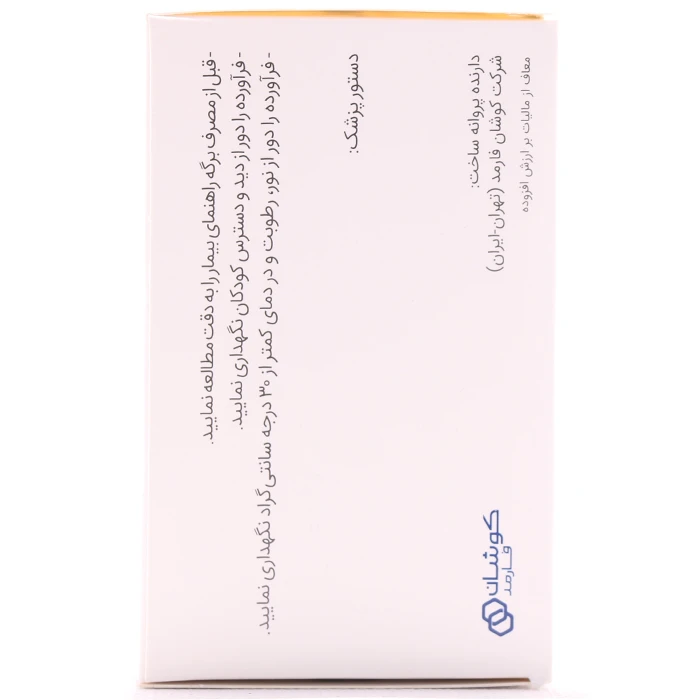 - قبل از مصرف برگه راهنمای بیمار را به دقت مطالعه نمایید.
- فرآورده را دور از دید و دسترس کودکان نگهداری نمایید.
- فرآورده را دور از نور، رطوبت و در دمای کمتر از ۳۰ درجه سانتی گراد نگهداری نمایید.
دستور پزشک:
دارنده پروانه ساخت:
شرکت کوشان فارمد (تهران-ایران)
معاف از مالیات بر ارزش افزوده
کوشان
فارمد